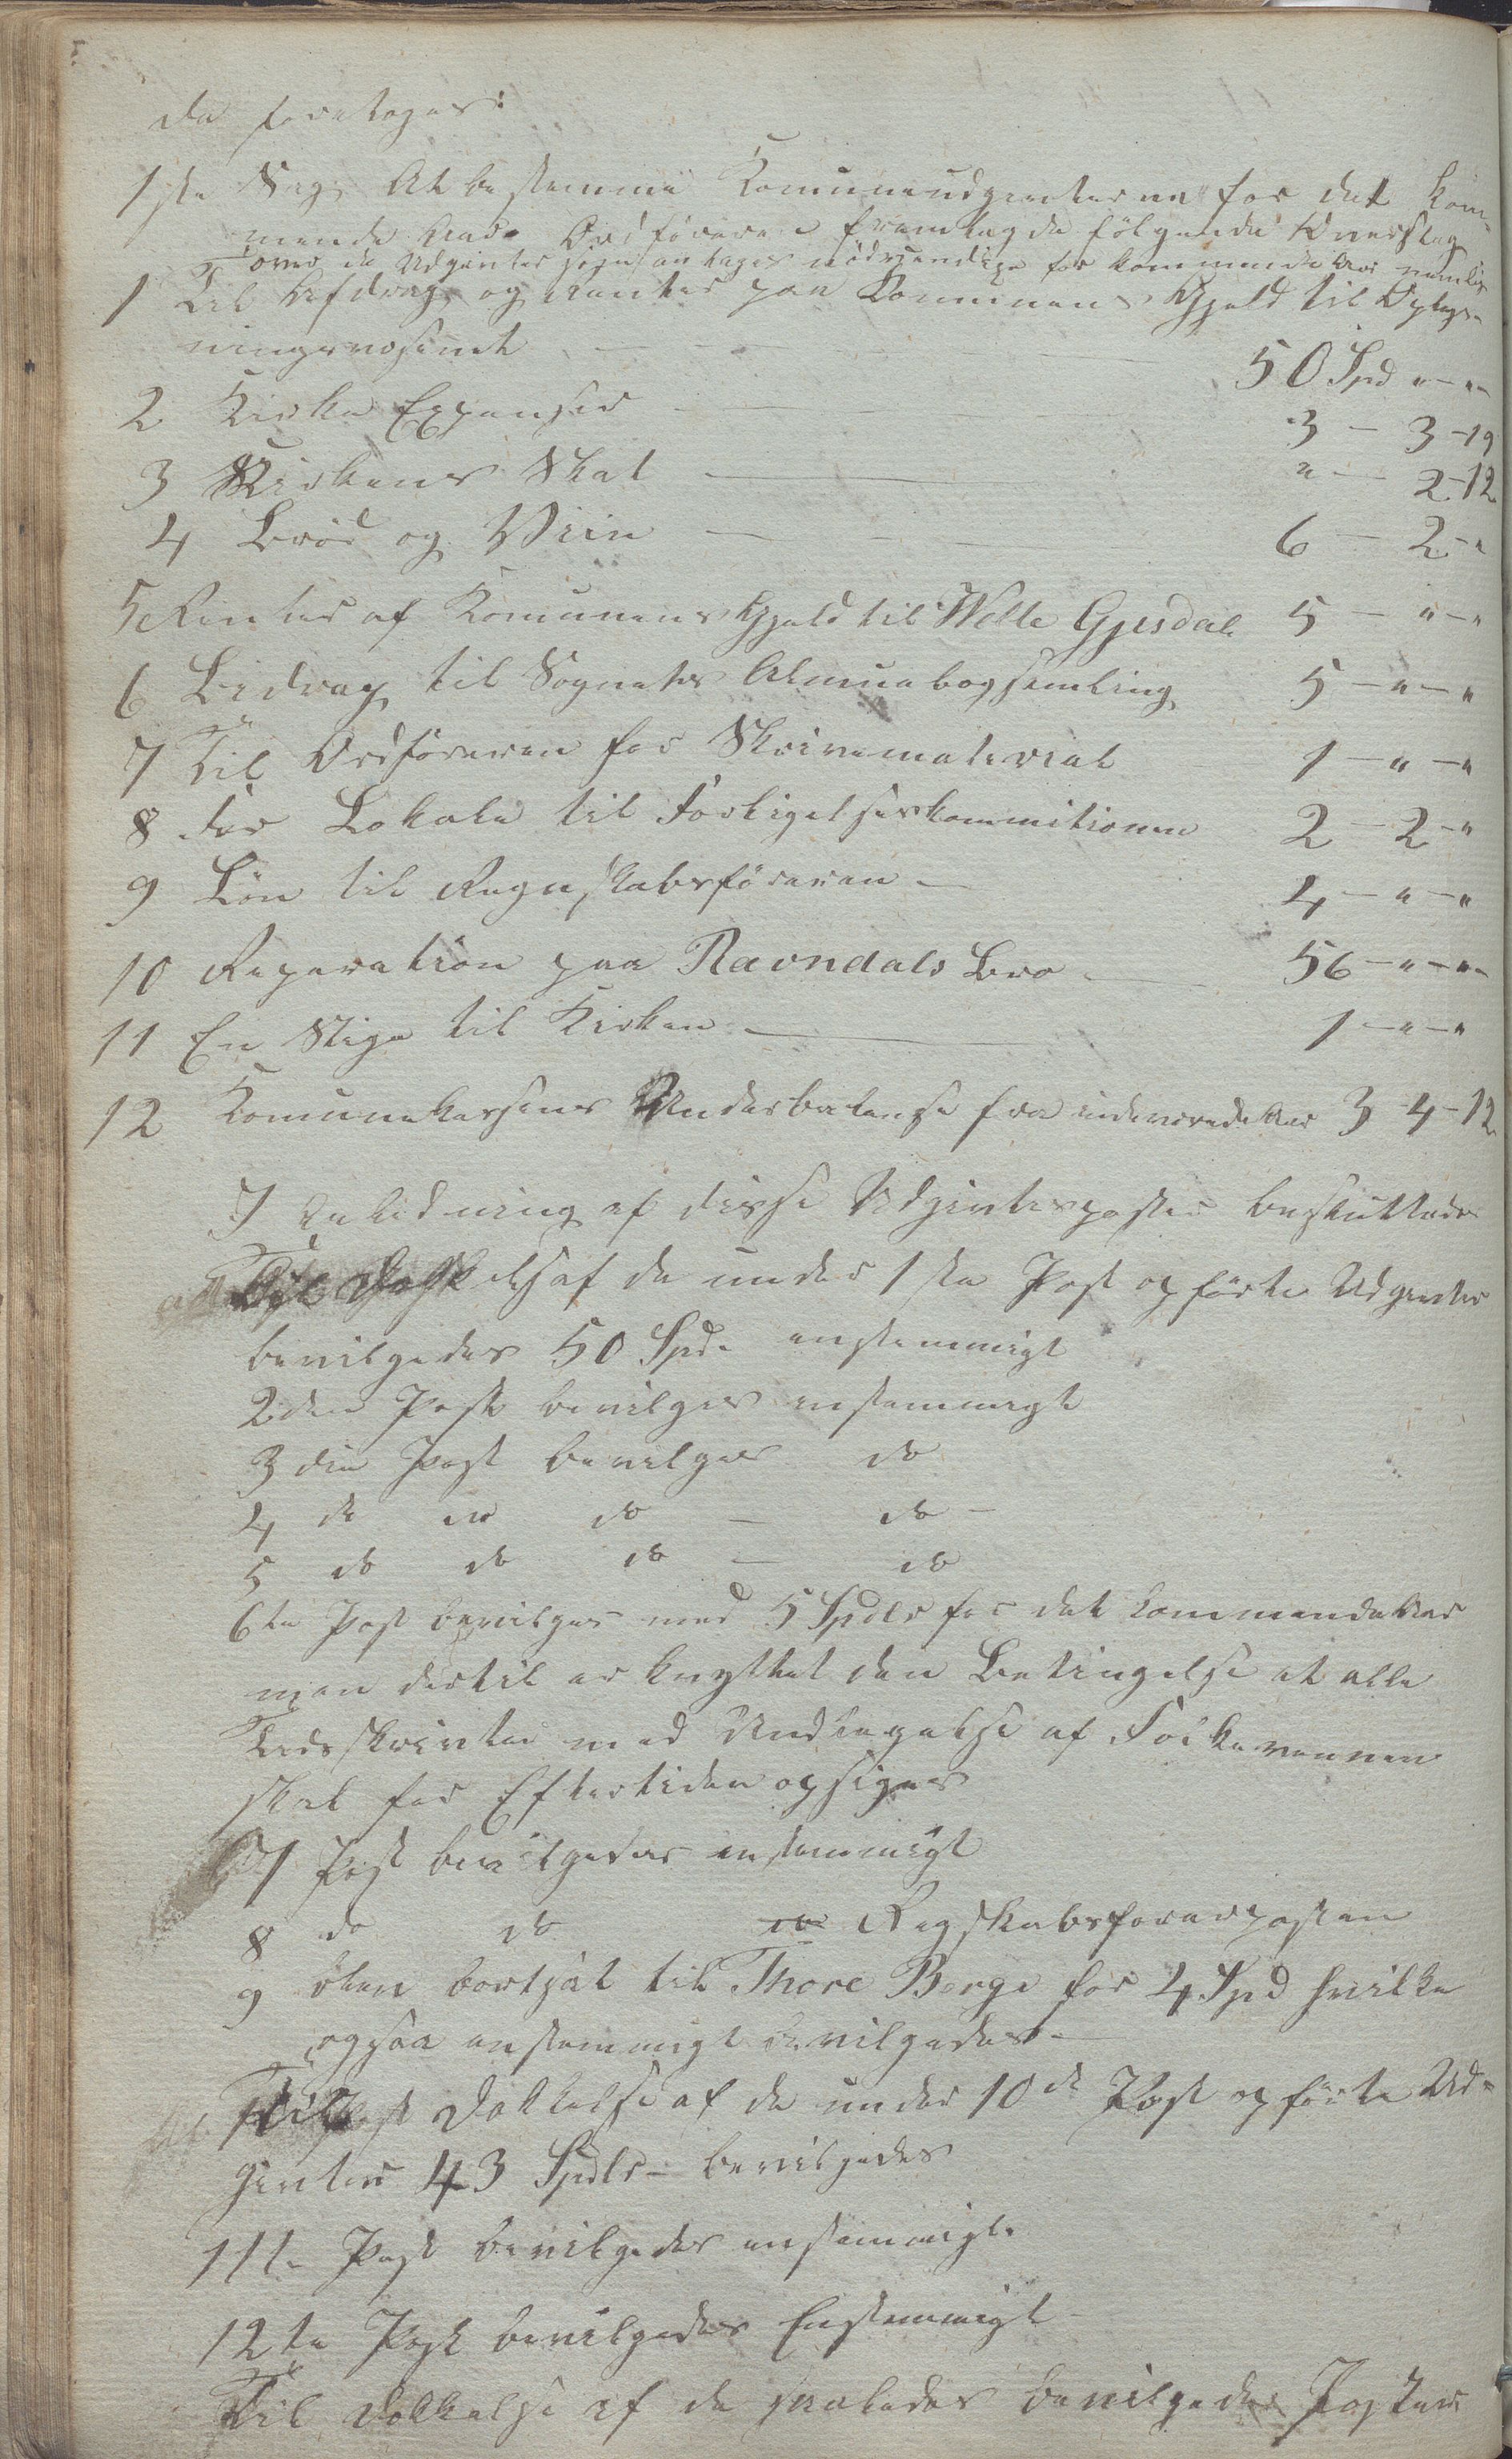 da foretoges:
1ste Sag. At bestemme Komuneudgivterne for det kom-
mende Aar. Ordföreren fremlagde fölgende Overslag
over de Udgivter som antages nödvendige for kommende Aar nemlig
1 Til Afdrag og renter paa Komunens Gjeld til Oplys-
ningsvæsenet — — — 50 Spd " - "
2 Kirke Expenser — — 3 - 3 - 19
3 Kirkens Skat — — " - 2 - 12
4 Bröd og Viin — — 6 - 2 - "
5 Renter af Komunens Gjeld til Welle Gjesdal 5 - " - "
6 Bidrag til Sognets Almuebogsamling 5 - " - "
7 Til Ordföreren for Skrivematerial 1 - " - "
8 For Lokale til Forligelseskommitionen 2 - 2 - "
9 Lön til Regnskabsföreren — 4 - " - "
10 Reparation paa Ravndals Bro — 56 - " - "
11 En Stige til Kirken — 1 - " - "
12 Komunekassens Underbalanse fra indeverende Aar 3 - 4 - 12
I Anledning af disse Udgivtsposter besluttedes
Til Dekkelse af de under 1ste Post opförte Udgivter
bevilgedes 50 Spd. enstemmigt
2den Post bevilges enstemmigt
3die Post bevilges do
4 do do do — do —
5 do do do — do
6te Post bevilges med 5 Spdlr for det kommende Aar
men dertil er knyttet den Betingelse at alle
Tidsskrivter med Undtagelse af Folkevennen
skal for Eftertiden opsiges
7 Post bevilgedes enstemmigt
8 do do do Regskabsförerposten
9 blev bortsat til Thore Berge for 4 Spd hvilke
ogsaa enstemmigt bevilgedes —
Til Dekkelse af de under 10de Post opförte Ud-
givter 43 Spdlr - bevilgedes
11te Post bevilgedes enstemmigt.
12te Post bevilgedes Enstemmigt
Til Dekkelse af de saaledes bevilgede Poster